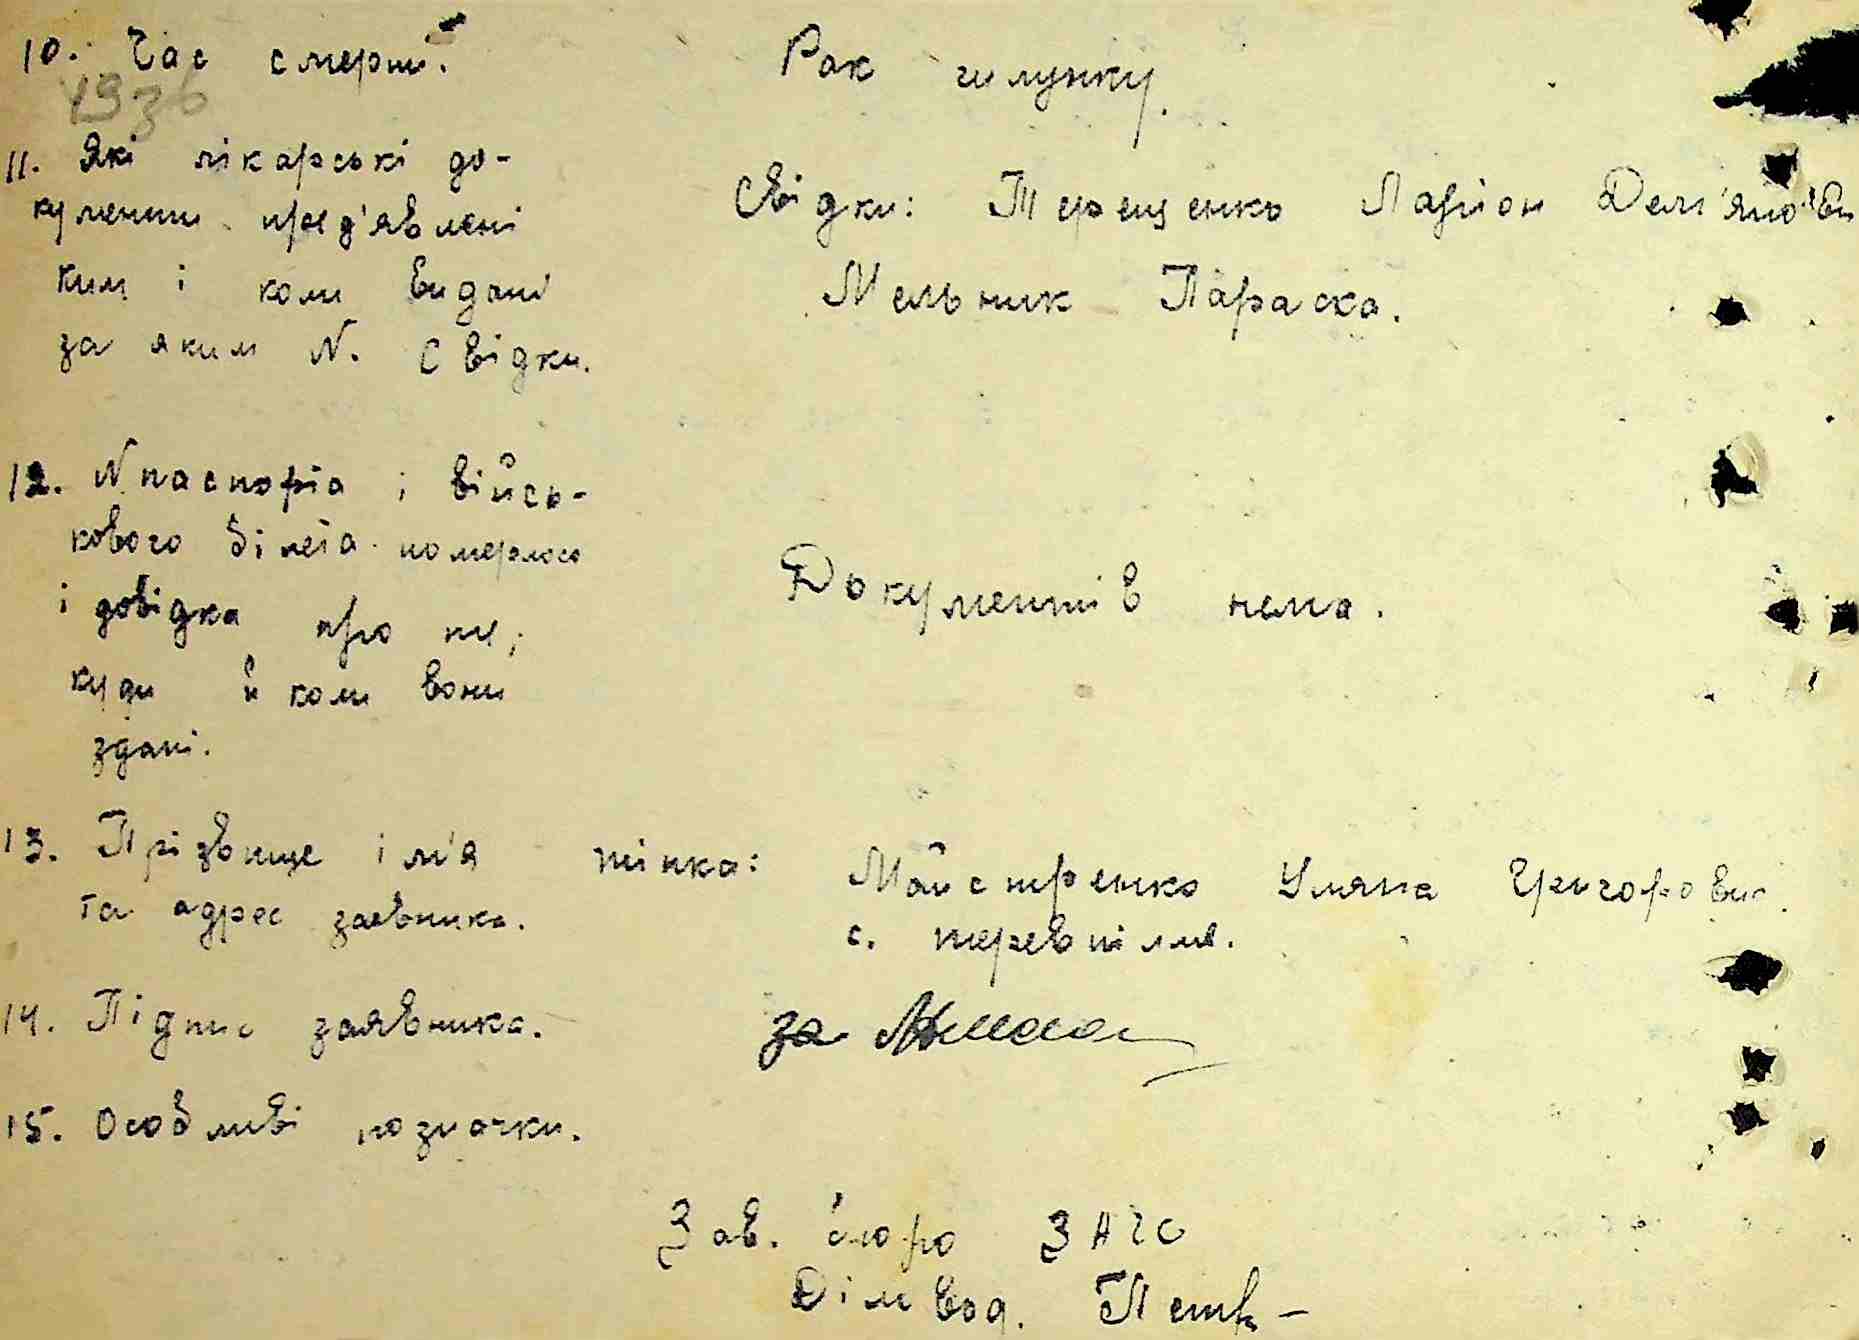 10. Час смерти. Рак шлунку.
1936
11. Які лікарські до-
кументи пред'явлені Свідки: Терещенко Ларіон Дем'янови
ким і коли видані Мельник Параска.
за яким N. Свідки.
12. N паспорта і війсь-
кового білета померлого
і довідка про них, Документів нема.
куди й коли вони
здані.
13. Прізвище ім'я жінка: Майстренко Уляна Григоровна.
та адрес заявника. с. Перевпілля.
14. Підпис заявника. за
15. Особливі позначки.
Зав. бюро ЗАГС
Діловод.